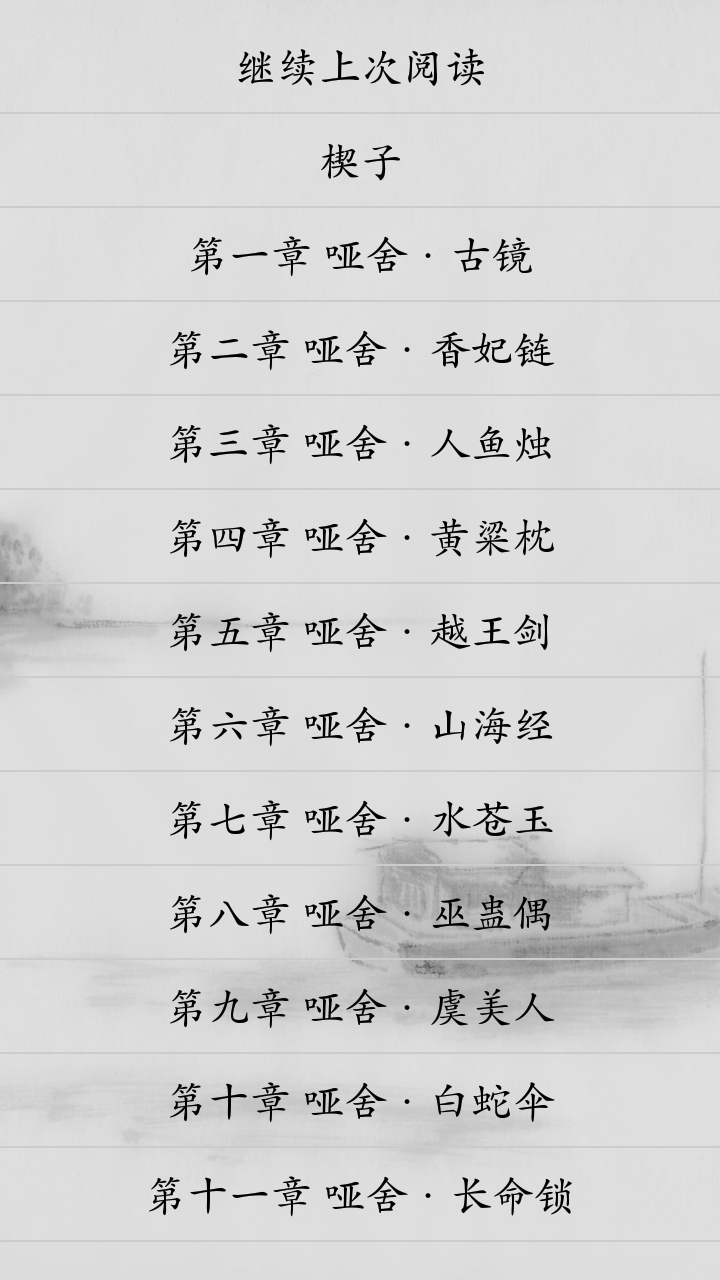 继续上次阅读
楔子
第一章 哑舍 · 古镜
第二章 哑舍 · 香妃链
第三章 哑舍 · 人鱼烛
第四章 哑舍 · 黄粱枕
第五章 哑舍 · 越王剑
第六章 哑舍 · 山海经
第七章 哑舍 · 水苍玉
第八章 哑舍 · 巫蛊偶
第九章 哑舍 · 虞美人
第十章 哑舍 · 白蛇伞
第十一章 哑舍 · 长命锁